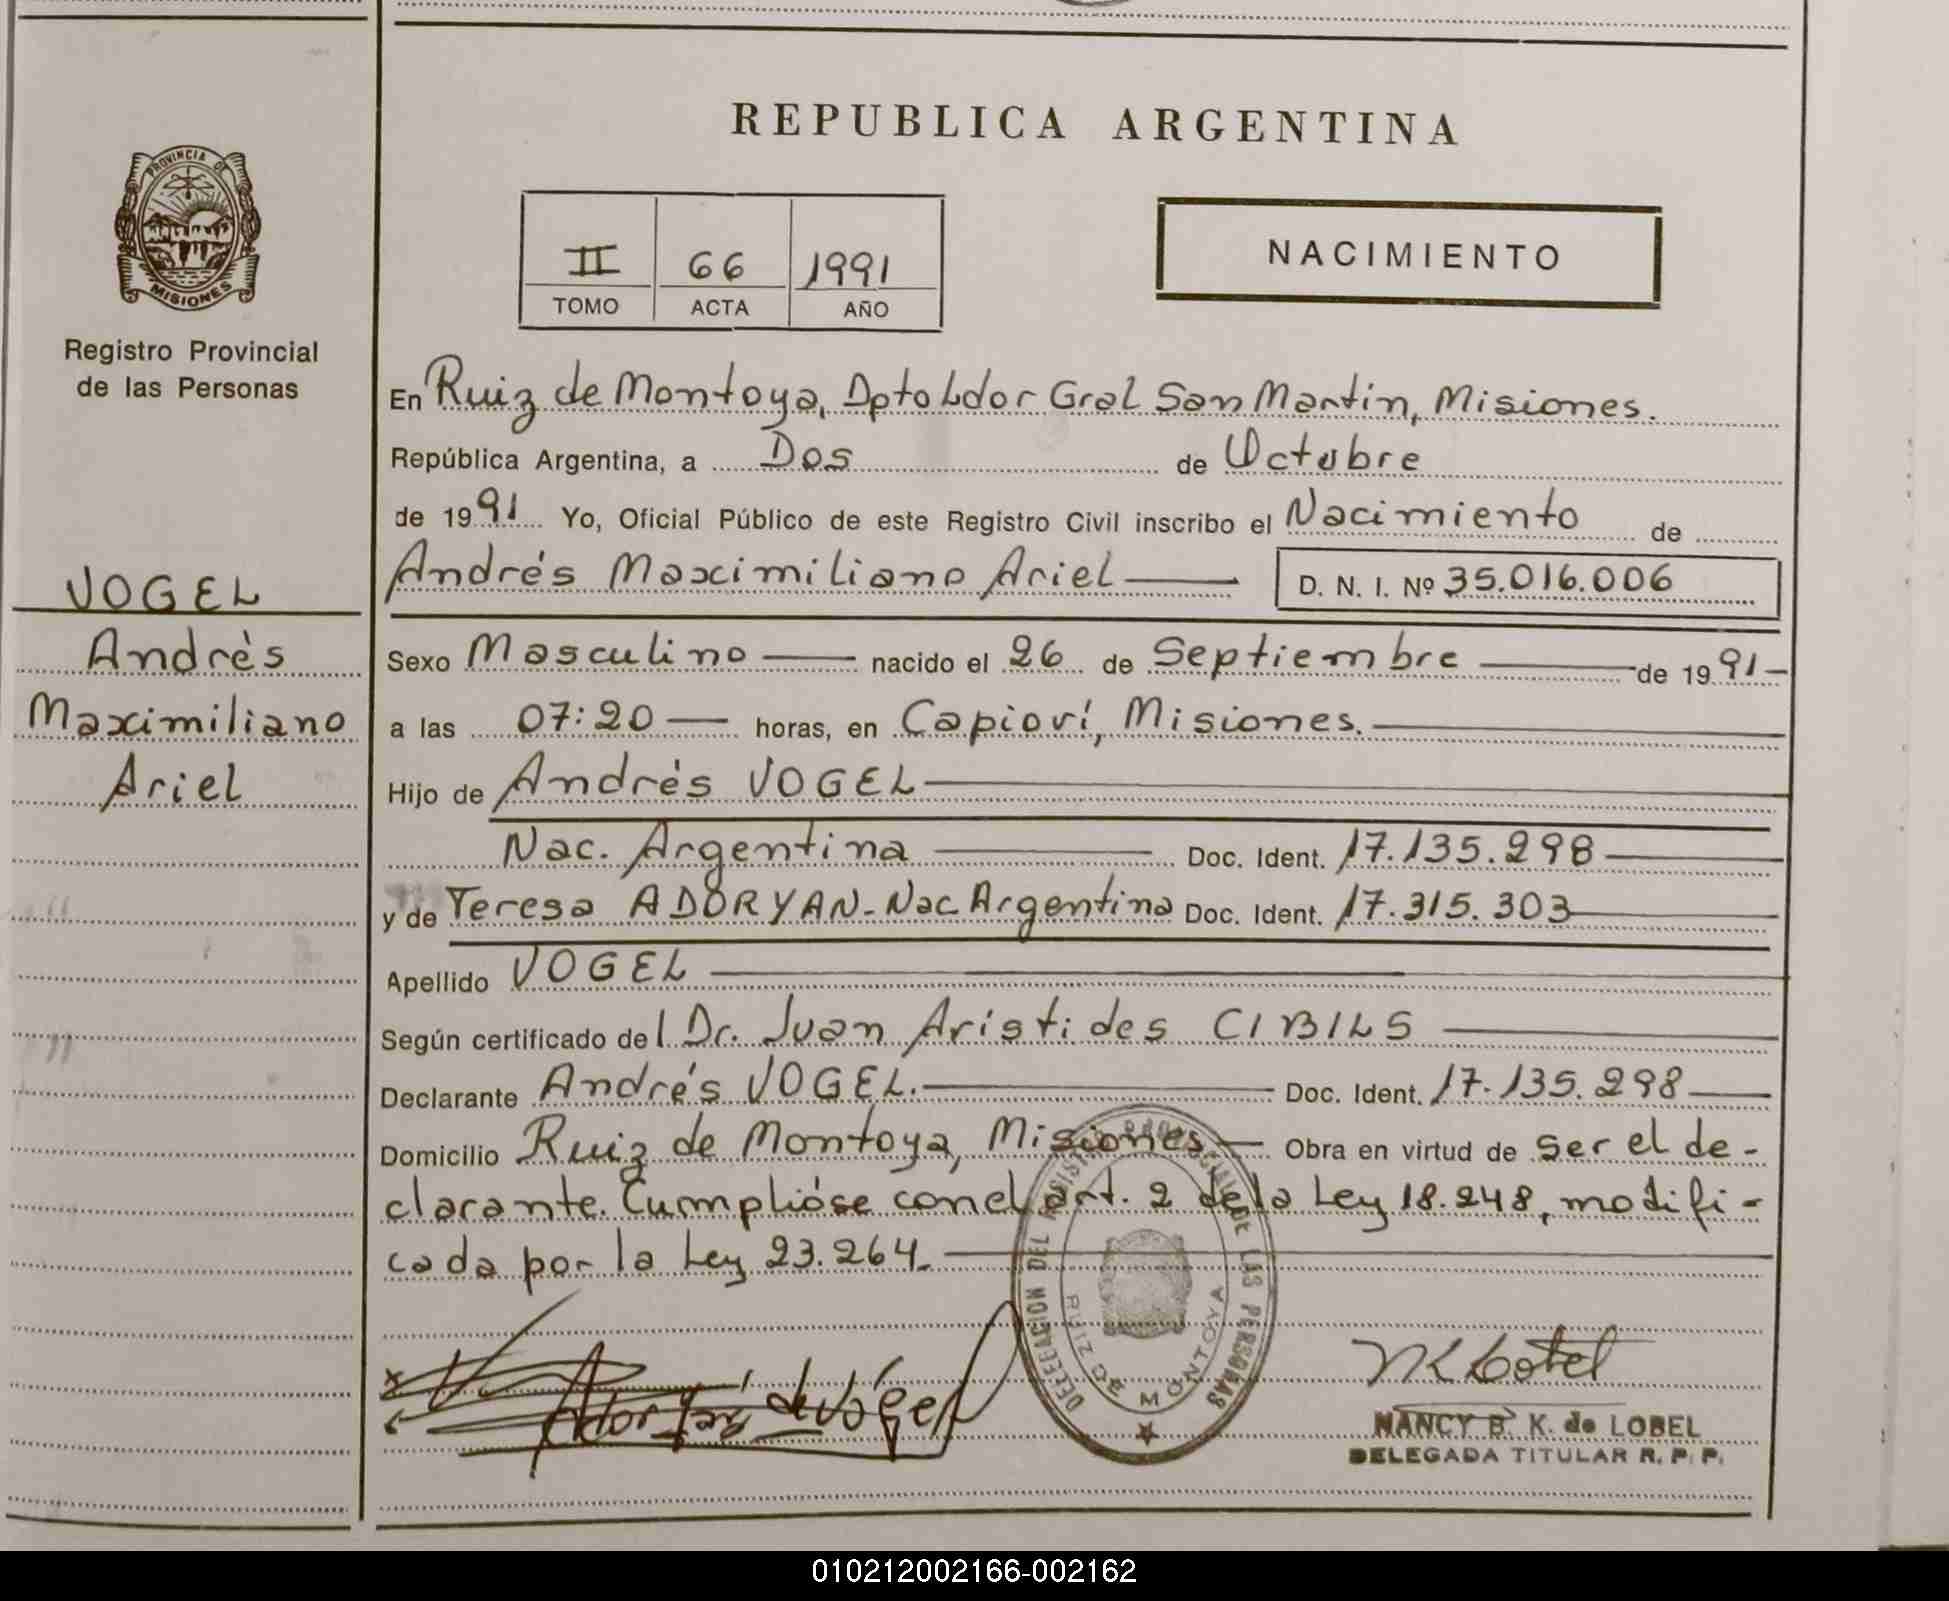 REPUBLICA ARGENTINA
PROVINCIA DE
MISIONES
Registro Provincial
de las Personas
II 66 1991
TOMO ACTA AÑO
NACIMIENTO
VOGEL
Andrés
Maximiliano
Ariel
En Ruiz de Montoya, Dpto Ldor Gral San Martín, Misiones.
República Argentina, a Dos de Octubre
de 1991 Yo, Oficial Público de este Registro Civil inscribo el Nacimiento de
Andrés Maximiliano Ariel D. N. I. Nº 35.016.006
Sexo Masculino nacido el 26 de Septiembre de 1991
a las 07:20 horas, en Capioví, Misiones.
Hijo de Andrés VOGEL
Nac. Argentina Doc. Ident. 17.135.298
y de Teresa ADORYAN - Nac Argentina Doc. Ident. 17.315.303
Apellido VOGEL
Según certificado del Dr. Juan Arístides CIBILS
Declarante Andrés VOGEL. Doc. Ident. 17.135.298
Domicilio Ruiz de Montoya, Misiones Obra en virtud de ser el de-
clarante. Cumplióse con el art. 2 de la Ley 18.248, modifi-
cada por la Ley 23.264.
DELEGACION DEL REGISTRO PROVINCIAL DE LAS PERSONAS
RUIZ DE MONTOYA
de Vogel
NANCY B. K. de LOBEL
DELEGADA TITULAR R. P. P.
010212002166-002162